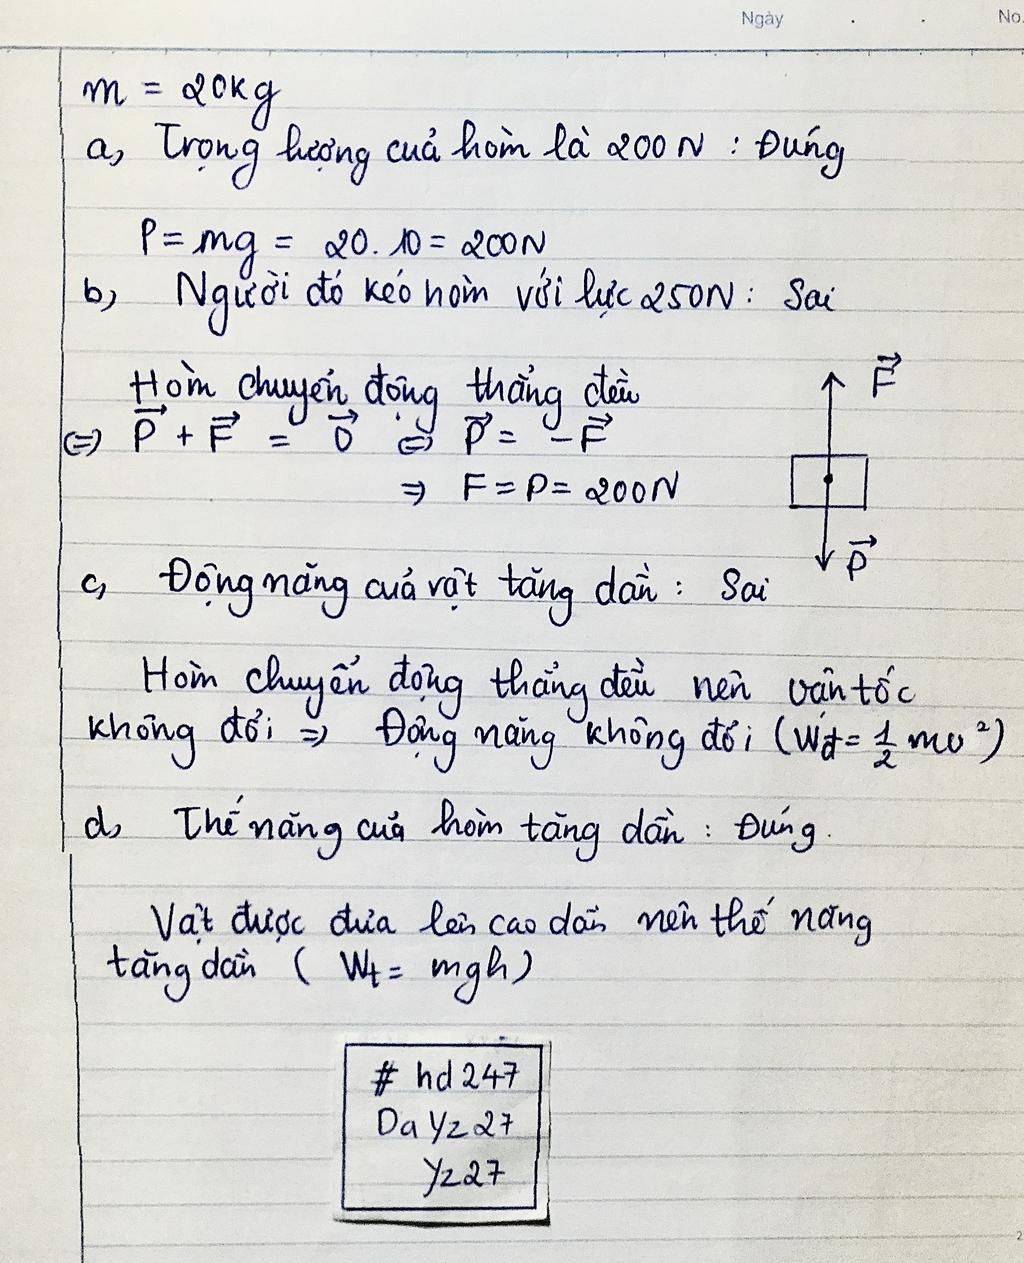 Ngày . . No.
m = 20kg
a, Trọng lượng của hòm là 200N : Đúng
P = mg = 20. 10 = 200N
b, Người đó kéo hòm với lực 250N : Sai
Hòm chuyển động thẳng đều
F→
⇔ P→ + F→ = 0→ ⇔ P→ = -F→
⇒ F = P = 200N
P→
c, Động năng của vật tăng dần : Sai
Hòm chuyển động thẳng đều nên vận tốc
không đổi ⇒ Động năng không đổi (Wđ = 1/2 mv²)
d, Thế năng của hòm tăng dần : Đúng.
Vật được đưa lên cao dần nên thế năng
tăng dần ( Wt = mgh)
# hd247
Da Yz27
Yz27
2